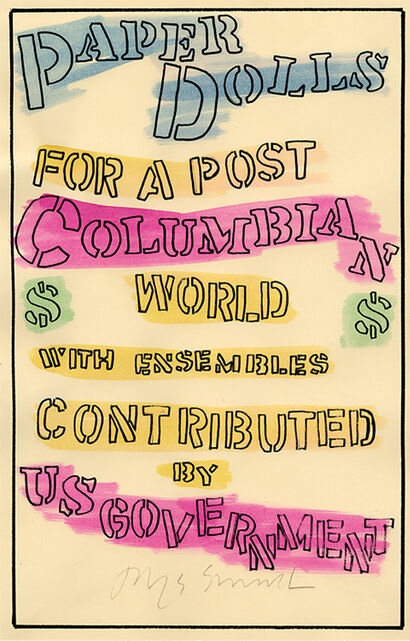 PAPER
DOLLS
FOR A POST
COLUMBIAN
$ WORLD $
WITH ENSEMBLES
CONTRIBUTED
BY
US GOVERNMENT